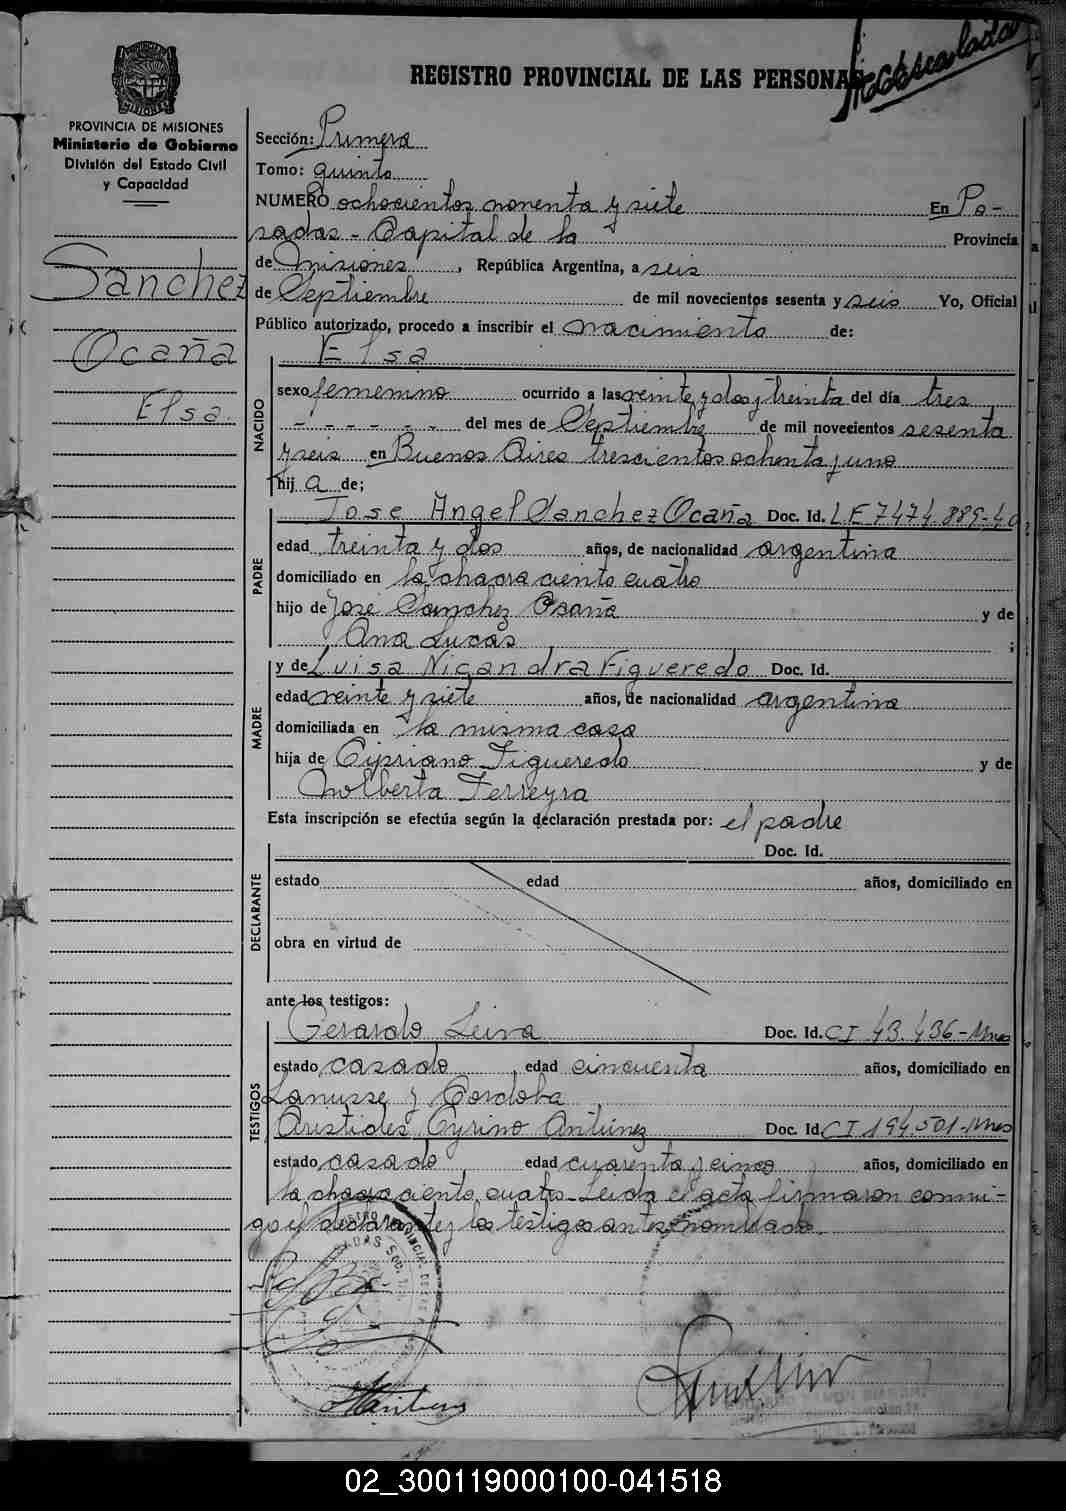 REGISTRO PROVINCIAL DE LAS PERSONAS
PROVINCIA DE MISIONES
Ministerio de Gobierno
División del Estado Civil
y Capacidad
Sanchez
Ocaña
Elsa.
Sección: Primera
Tomo: quinto
NUMERO ochocientos noventa y siete En Po-
sadas - Capital de la Provincia
de Misiones, República Argentina, a seis
de Septiembre de mil novecientos sesenta y seis Yo, Oficial
Público autorizado, procedo a inscribir el nacimiento de:
NACIDO
Elsa
sexo femenino ocurrido a las veinte y dos y treinta del día tres
- - - - - - del mes de Septiembre de mil novecientos sesenta
y seis en Buenos Aires trescientos ochenta y uno
hij a de;
PADRE
Jose Angel Sanchez Ocaña Doc. Id. L.E 7.474.889-
edad treinta y dos años, de nacionalidad argentina
domiciliado en la chacra ciento cuatro
hijo de Jose Sanchez Ocaña y de
Ana Lucas ;
MADRE
y de Luisa Nicandra Figueredo Doc. Id.
edad veinte y siete años, de nacionalidad argentina
domiciliada en la misma casa
hija de Cipriano Figueredo y de
Ferreyra
Esta inscripción se efectúa según la declaración prestada por: el padre
DECLARANTE
Doc. Id.
estado edad años, domiciliado en
obra en virtud de
ante los testigos:
TESTIGOS
Gerardo Leiva Doc. Id. CI 43.436-Mnes
estado casado edad cincuenta años, domiciliado en
Lanusse y Cordoba
Aristides Cyrino Antunez Doc. Id. CI 194.501-Mnes
estado casado edad cuarenta y cinco años, domiciliado en
la chacra ciento cuatro - Leida el acta firmaron conmi-
go el declarante y los testigos antes nombrado.
02_300119000100-041518